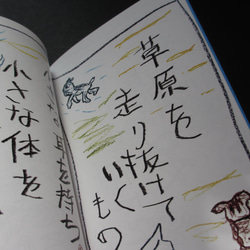 草原を
走り抜けて
いくもの
小さな体を
耳を持ち